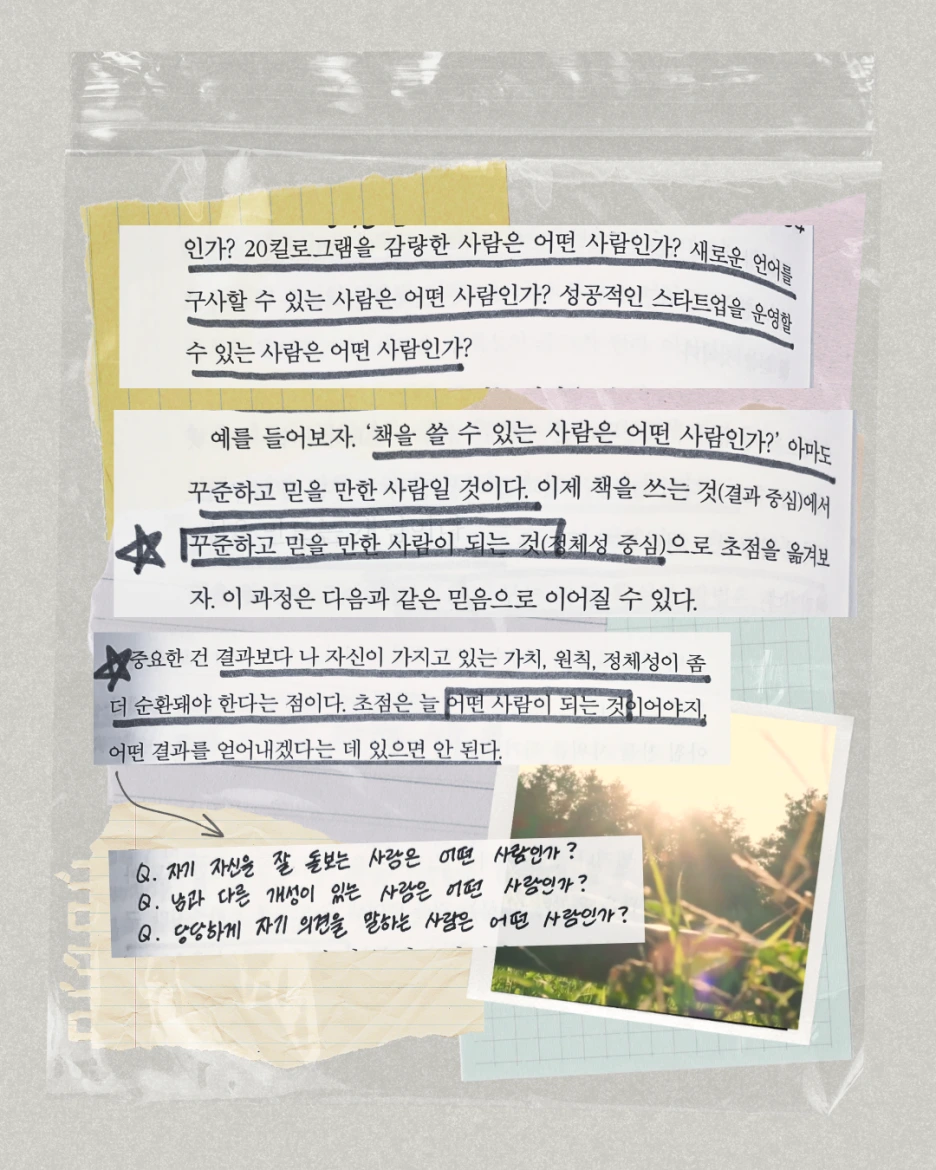 인가? 20킬로그램을 감량한 사람은 어떤 사람인가? 새로운 언어를
구사할 수 있는 사람은 어떤 사람인가? 성공적인 스타트업을 운영할
수 있는 사람은 어떤 사람인가?
예를 들어보자. ‘책을 쓸 수 있는 사람은 어떤 사람인가?’ 아마도
꾸준하고 믿을 만한 사람일 것이다. 이제 책을 쓰는 것(결과 중심)에서
꾸준하고 믿을 만한 사람이 되는 것(정체성 중심)으로 초점을 옮겨보
자. 이 과정은 다음과 같은 믿음으로 이어질 수 있다.
중요한 건 결과보다 나 자신이 가지고 있는 가치, 원칙, 정체성이 좀
더 순환돼야 한다는 점이다. 초점은 늘 어떤 사람이 되는 것이어야지,
어떤 결과를 얻어내겠다는 데 있으면 안 된다.
Q. 자기 자신을 잘 돌보는 사람은 어떤 사람인가?
Q. 남과 다른 개성이 있는 사람은 어떤 사람인가?
Q. 당당하게 자기 의견을 말하는 사람은 어떤 사람인가?